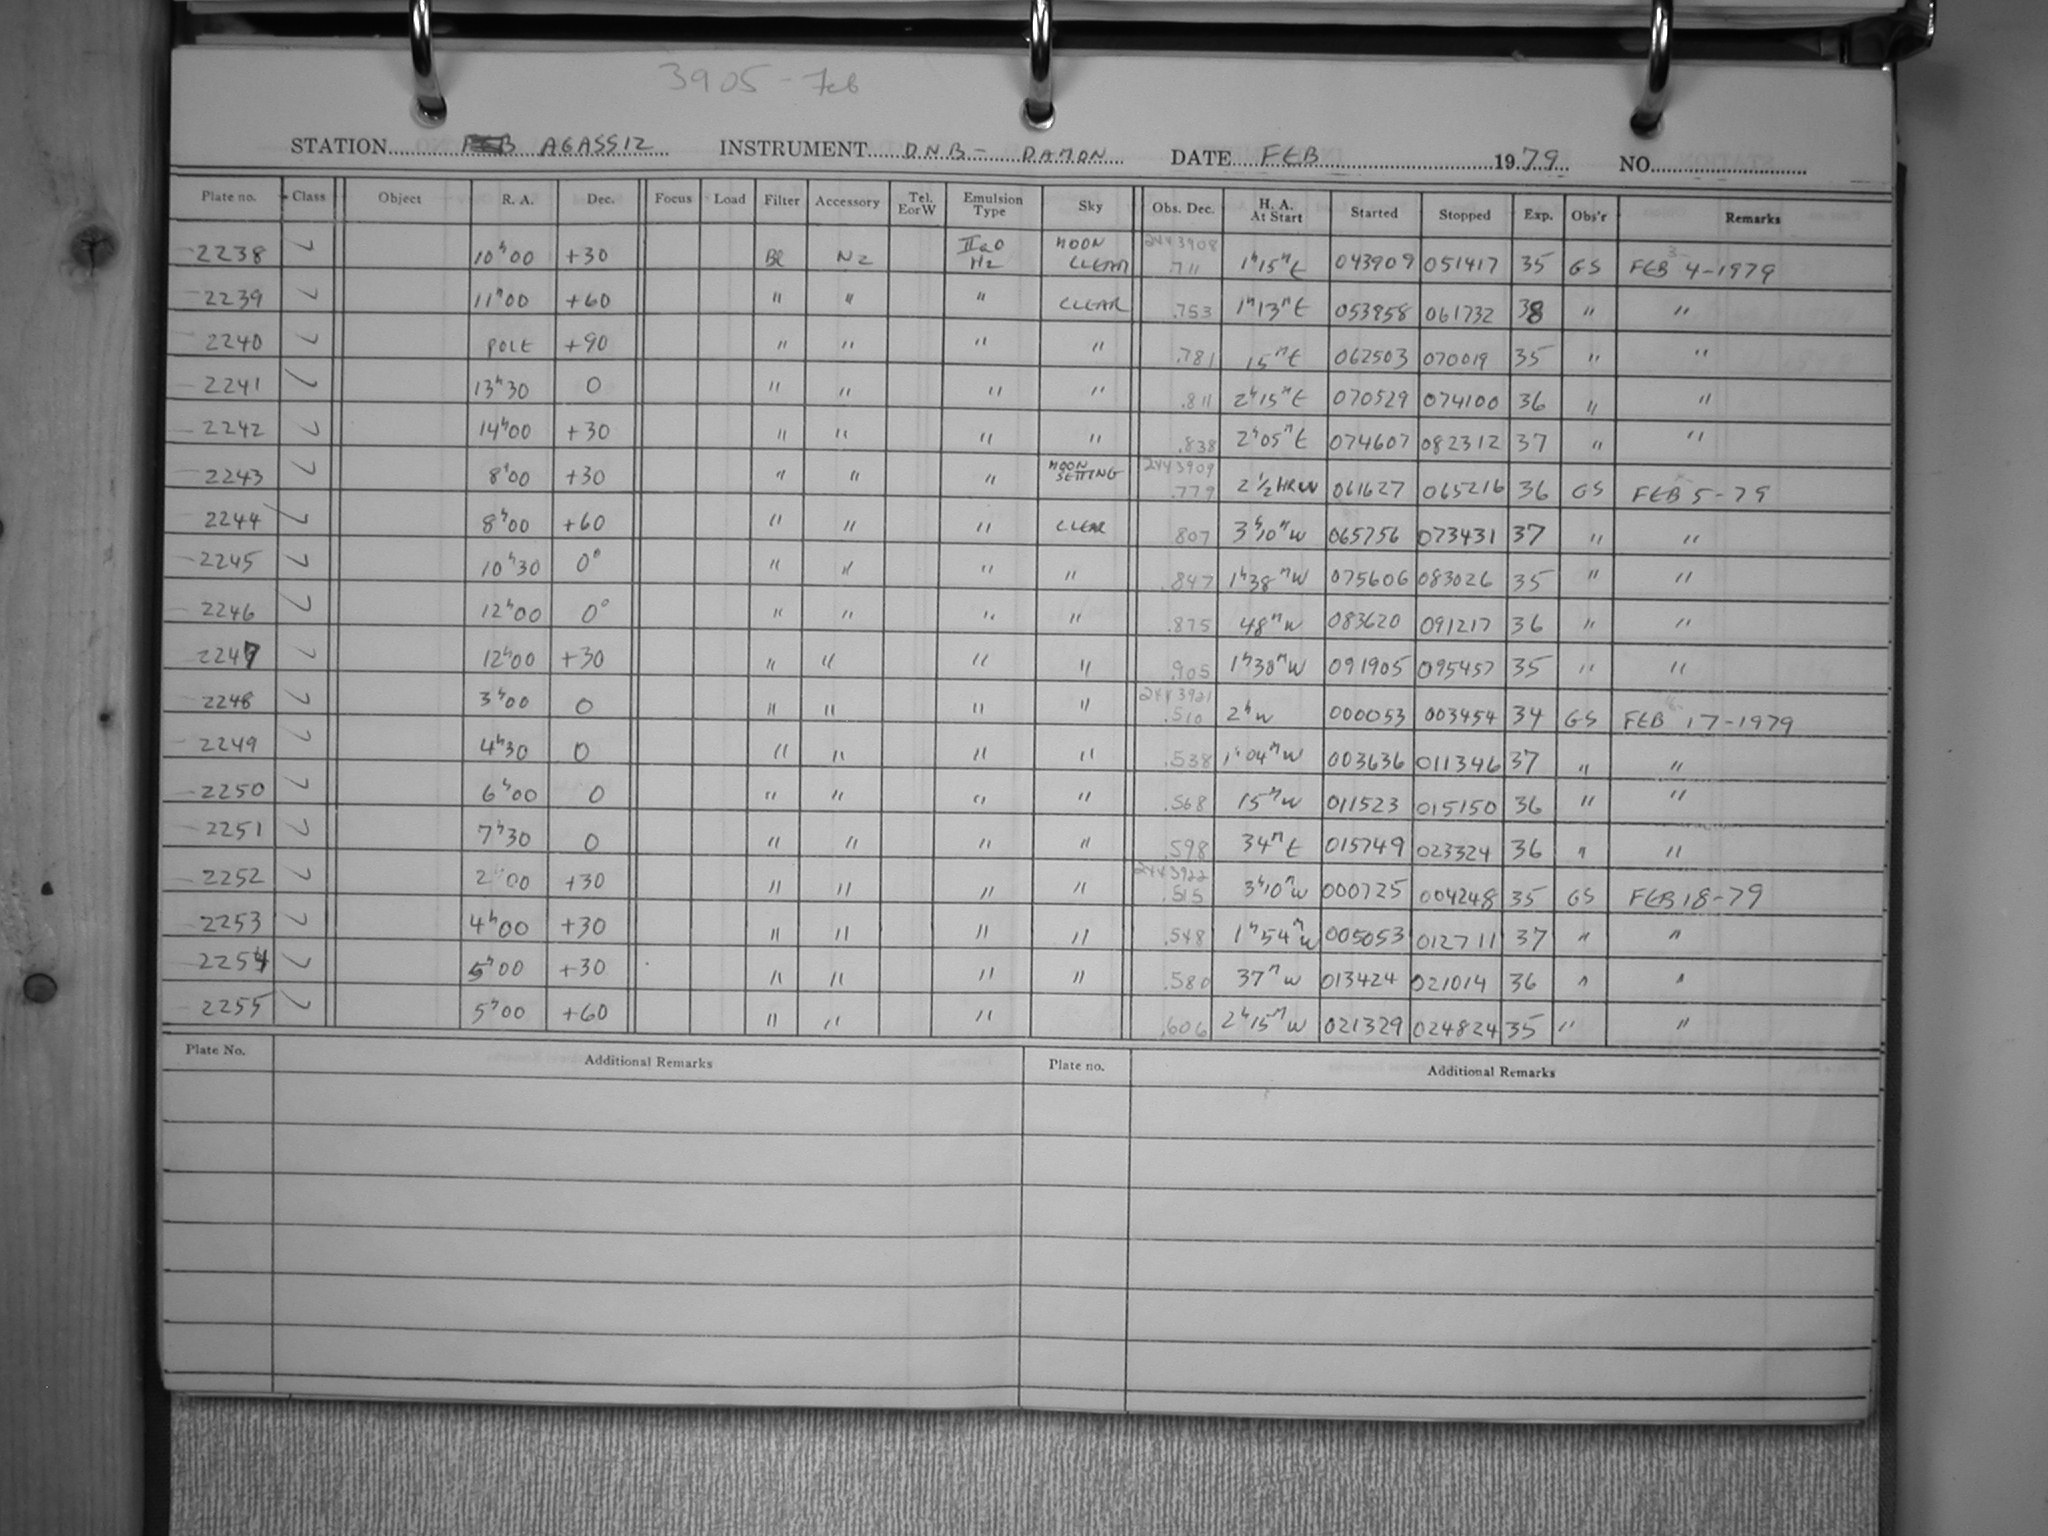 3905 - Feb
STATION AGASSIZ INSTRUMENT DNB - DAMON DATE FEB 1979 NO.
Plate no. Class Object R. A. Dec. Focus Load Filter Accessory Tel. EorW Emulsion Type Sky Obs. Dec. H. A. At Start Started Stopped Exp. Obs'r Remarks
2238 ✓ 10h00 +30 Bl N2 IIaO H2 MOON CLEAR 2443908 .711 1h15m E 043909 051417 35 GS FEB 3- 4-1979
2239 ✓ 11h00 +60 " " " CLEAR .753 1h13m E 053958 061732 38 " "
2240 ✓ POLE +90 " " " " .781 15m E 062503 070019 35 " "
2241 ✓ 13h30 0 " " " " .811 2h15m E 070529 074100 36 " "
2242 ✓ 14h00 +30 " " " " .838 2h05m E 074607 082312 37 " "
2243 ✓ 8h00 +30 " " " MOON SETTING 2443909 .779 2 1/2 HR W 061627 065216 36 GS FEB 5-79
2244 ✓ 8h00 +60 " " " CLEAR .807 3h10m W 065756 073431 37 " "
2245 ✓ 10h30 0° " " " " .847 1h38m W 075606 083026 35 " "
2246 ✓ 12h00 0° " " " " .875 48m W 083620 091217 36 " "
2247 ✓ 12h00 +30 " " " " .905 1h30m W 091905 095457 35 " "
2248 ✓ 3h00 0 " " " " 2443921 .510 2h W 000053 003454 34 GS FEB 16- 17-1979
2249 ✓ 4h30 0 " " " " .538 1h04m W 003636 011346 37 " "
2250 ✓ 6h00 0 " " " " .568 15m W 011523 015150 36 " "
2251 ✓ 7h30 0 " " " " .598 34m E 015749 023324 36 " "
2252 ✓ 2h00 +30 " " " " 2443922 .515 3h10m W 000725 004248 35 GS FEB 18-79
2253 ✓ 4h00 +30 " " " " .548 1h54m W 005053 012711 37 " "
2254 ✓ 5h00 +30 " " " " .580 37m W 013424 021014 36 " "
2255 ✓ 5h00 +60 " " " .606 2h15m W 021329 024824 35 " "
Plate No. Additional Remarks Plate no. Additional Remarks